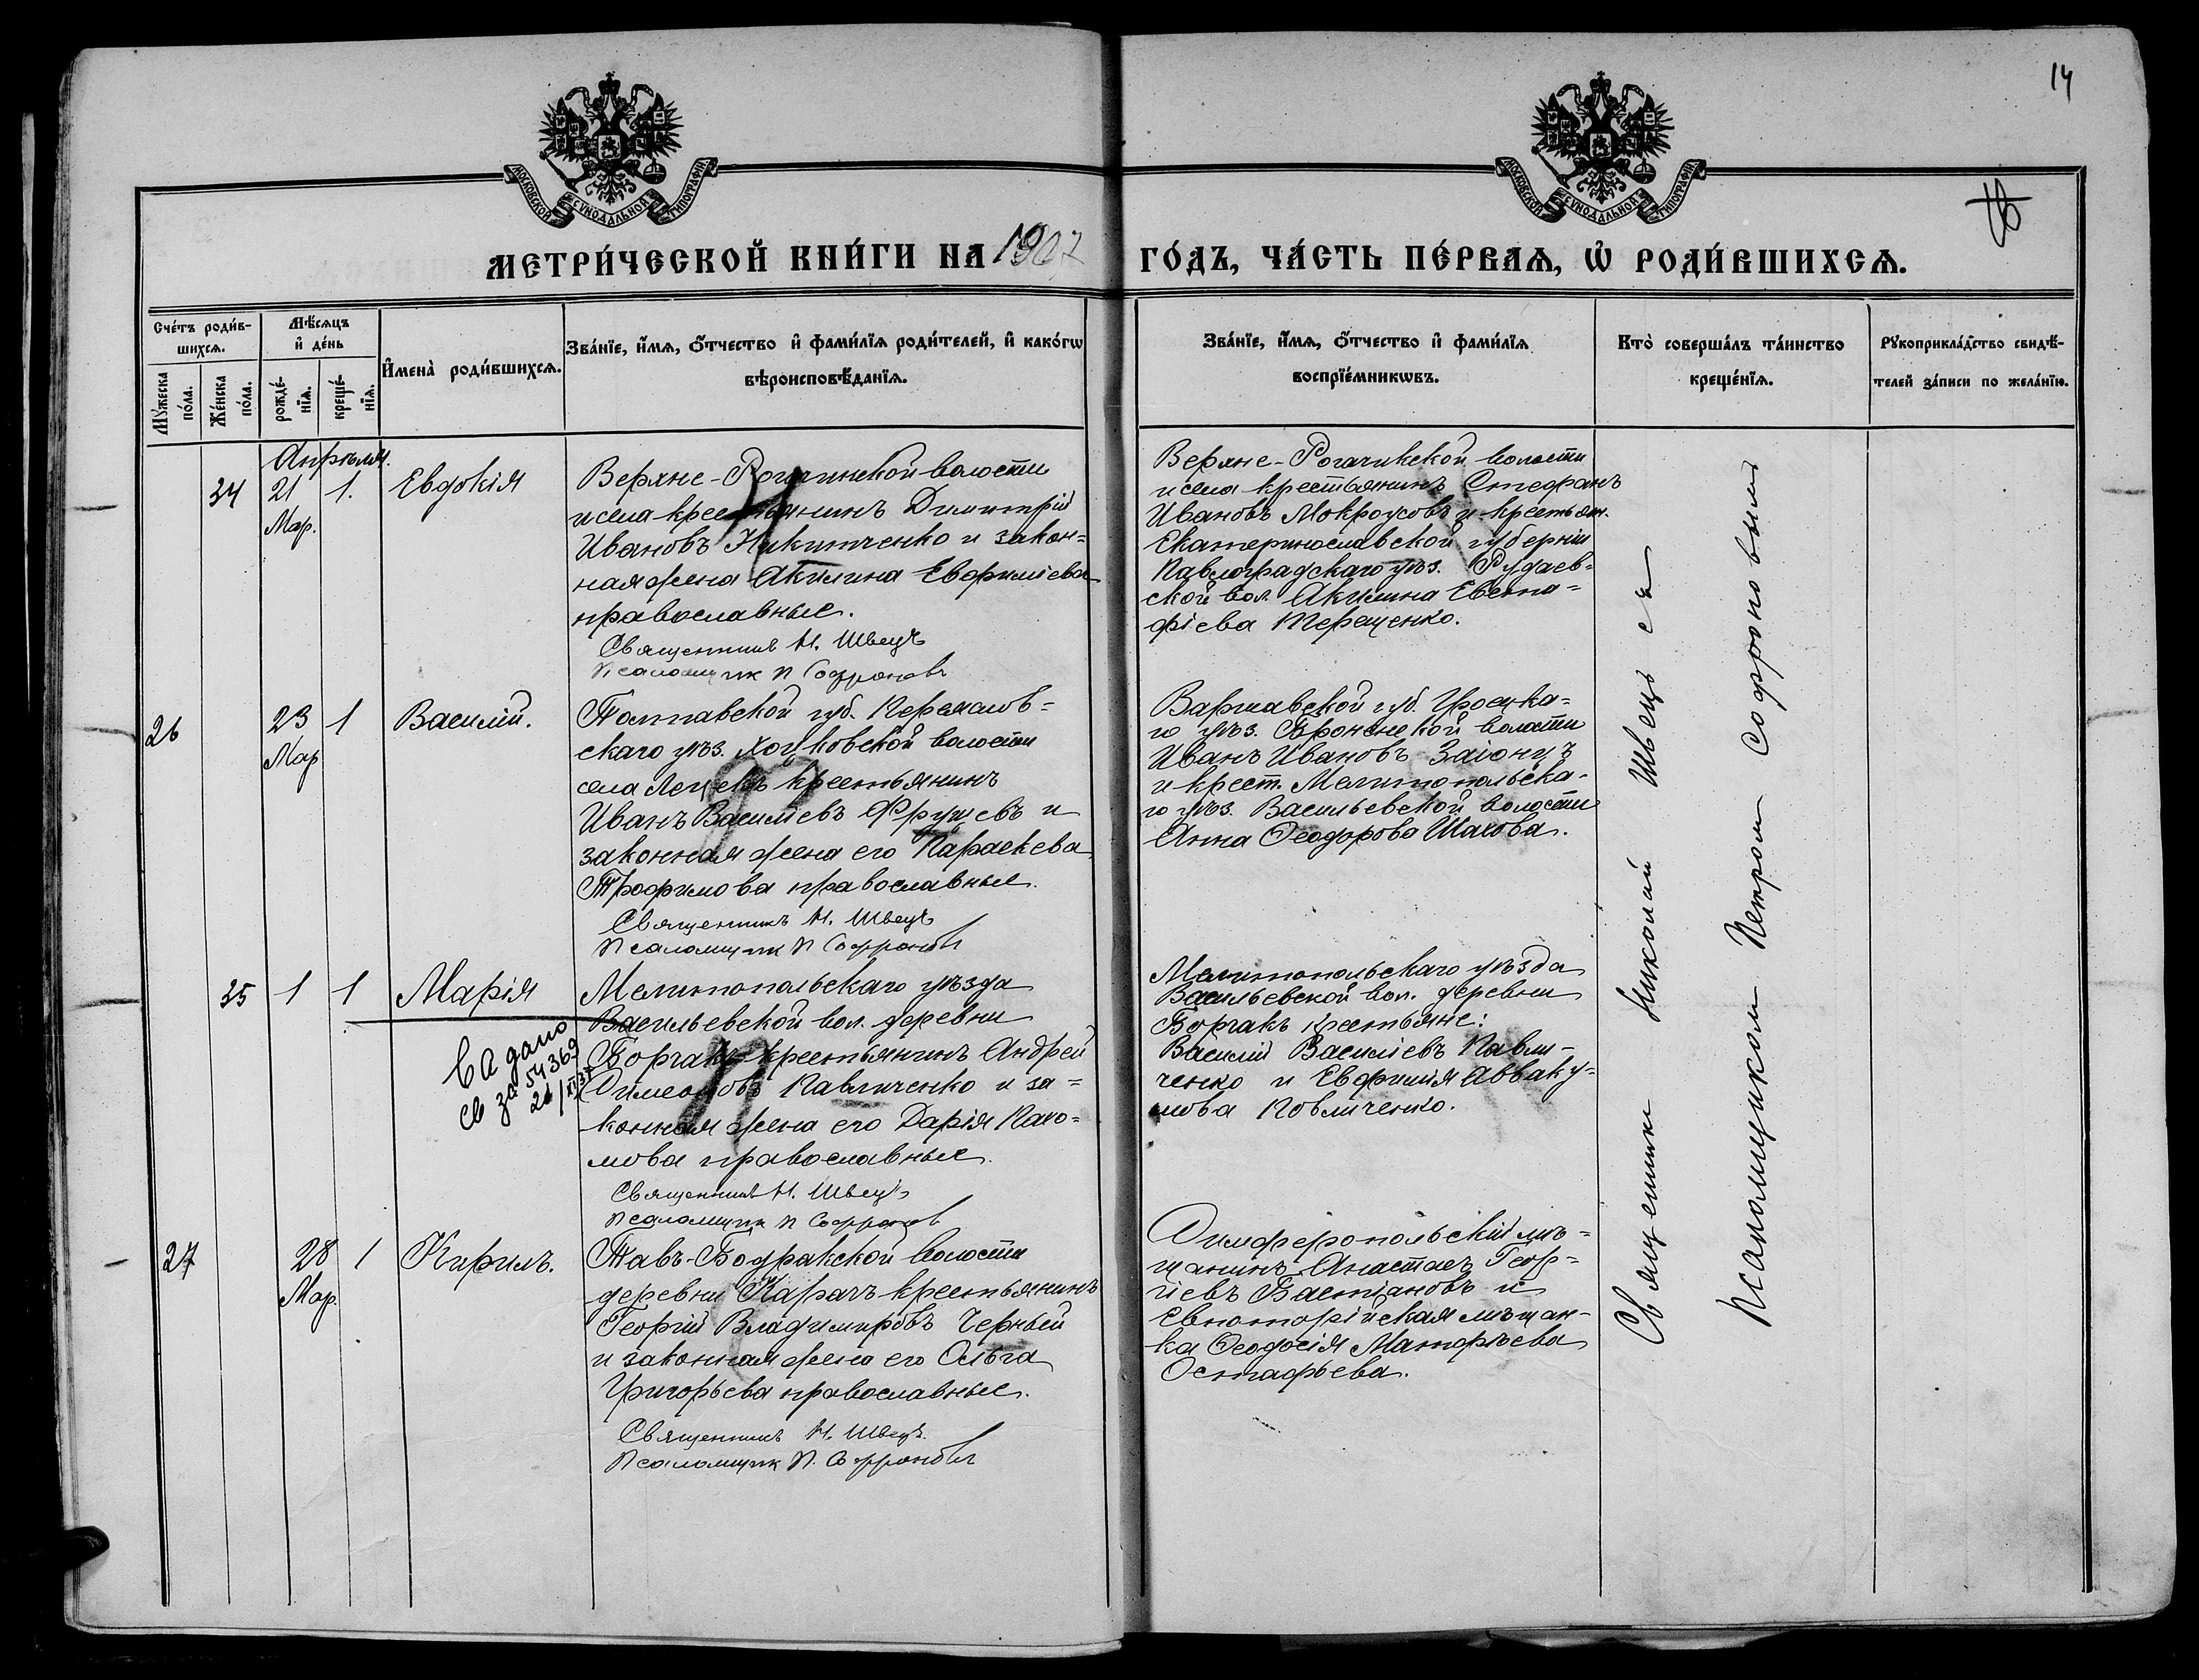 14
МОСКОВСКОЙ СУНОДАЛЬНОЙ ТИПОГРАФІИ
МОСКОВСКОЙ СУНОДАЛЬНОЙ ТИПОГРАФІИ
МЕТРИ́ЧЕСКОЙ КНИ́ГИ НА 1907 ГО́ДЪ, ЧА́СТЬ ПЕ́РВАѦ, Ѡ҆ РОДИ́ВШИХСѦ.
Сче́тъ роди́в-
шихсѧ.
Мѹ́жеска по́ла.
Же́нска по́ла.
Мѣ́сѧцъ
и҆ де́нь
рожде́-
нїѧ.
креще́-
нїѧ.
И҆мена̀ роди́вшихсѧ.
Зва́нїе, и҆́мѧ, ѻ҆́тчество и҆ фами́лїѧ роди́телей, и҆ како́гѡ
вѣроисповѣ́данїѧ.
Зва́нїе, и҆́мѧ, ѻ҆́тчество и҆ фами́лїѧ
воспрїе́мникѡвъ.
Кто̀ соверша́лъ та́инство
креще́нїѧ.
Рѹкоприкла́дство свидѣ́-
телей за́писи по жела́нїю.
Апрѣля.
34 21 1. Евдокія
Мар.
Верхне-Рогачикской волости
и села крестьянинъ Димитрій
Ивановъ Никитченко и закон-
ная жена Акилина Евфиміева
православные.
Священникъ Н. Швецъ
Псаломщик П Софроновъ
Верхне-Рогачикской волости
и села крестьянинъ Стефанъ
Ивановъ Мокроусовъ и крестьян.
Екатеринославской губерніи
Павлоградскаго уѣз. Рудаев-
ской вол. Акилина Евста-
фіева Терещенко.
26 23 1 Василій.
Мар
Полтавской губ. Переяслов-
скаго уѣз. Хоцковской волости
села крестьянинъ
Иванъ Василіевъ и
законная жена его Параскева
Трофимова православные.
Священникъ Н. Швецъ
Псаломщик П Софроновъ
Варшавской губ. Гроецка-
го уѣз. волости
Иванъ Ивановъ Заіонцъ
и крест. Мелитопольска-
го уѣз. Васильевской волости
Анна Ѳеодорова Шахова.
35 1 1 Марія
Мелитопольскаго уѣзда
Васильевской вол. деревни
крестьянинъ Андрей
Симеоновъ Павличенко и за-
конная жена его Дарія Пахо-
мова православные.
Священникъ Н. Швецъ
Псаломщик П Софронов
дано
св за 54369
Мелитопольскаго уѣзда
Васильевской вол. деревни
крестьяне:
Василій Василіевъ Павли-
ченко и Евфимія Авваку-
мова Повличенко.
27 28 1 Кирилъ.
Мар.
Тавъ-Бодракской волости
деревни Карачъ крестьянинъ
Георгій Владимировъ Черный
и законная жена его Ольга
Григорьева православные.
Священникъ Н. Швецъ.
Псаломщик П. Софроновъ
Симферопольскій мѣ-
щанинъ Анастасъ Геор-
гіевъ Бастіановъ и
Евпаторійская мѣщан-
ка Ѳеодосія Матѳѣева
Остафьева.
Священникъ Николай Швецъ съ
Псаломщикомъ Петромъ Софроновымъ